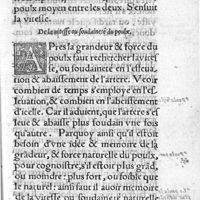 poulx moyen entre les deux. S'ensuit
la vitesse.
De la vitesse ou soudaineté du poulx.
APres la grandeur & force du
poulx faut rechercher la vites
se, ou soudaineté en l'esleua-
tion & abaissement de l'artere. Veoir
combien de temps s'employe en l'es-
leuation, & combien en l'abaissement
d'icelle. Car il aduient, que l'artere s'es-
leue, & abaisse plus soudain vne fois
qu'autre. Parquoy ainsi qu'il est
besoin d'vne idée & memoire de la
grandeur, & force naturelle du poulx
pour cognoistre, s'il est plus grãd,
ou moindre: plus fort, ou foible que
le naturel: ainsi faut il auoir memoire
de la vitesse, ou soudaineté naturelle